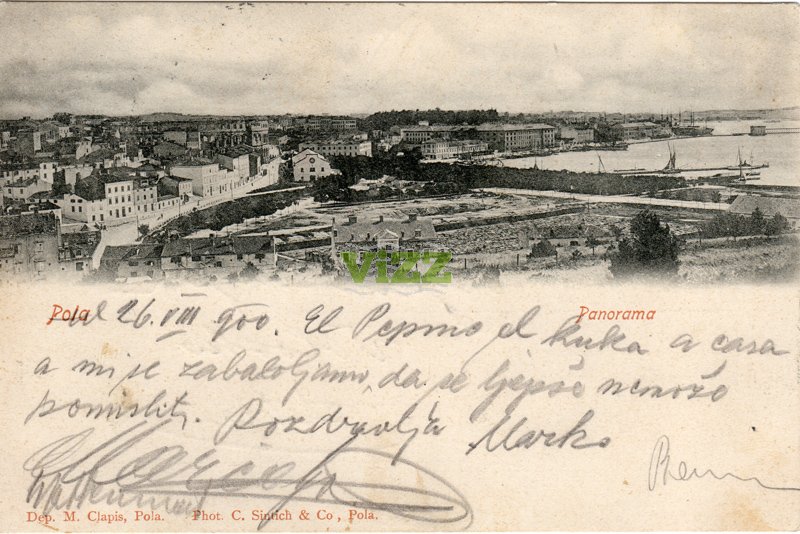 VIZZ
Pola
Panorama
od 26. VIII 900. El Pepino el kuka a casa
a mi se zabavljamo, da se ljepše nemože
pomisliti. Pozdravlja Marko
Dep. M. Clapis, Pola. Phot. C. Sintich & Co, Pola.